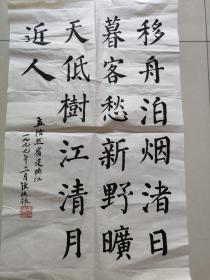 移舟泊烟渚日
暮客愁新野曠
天低樹江清月
近人
孟浩然宿建德江
一九九七年二月